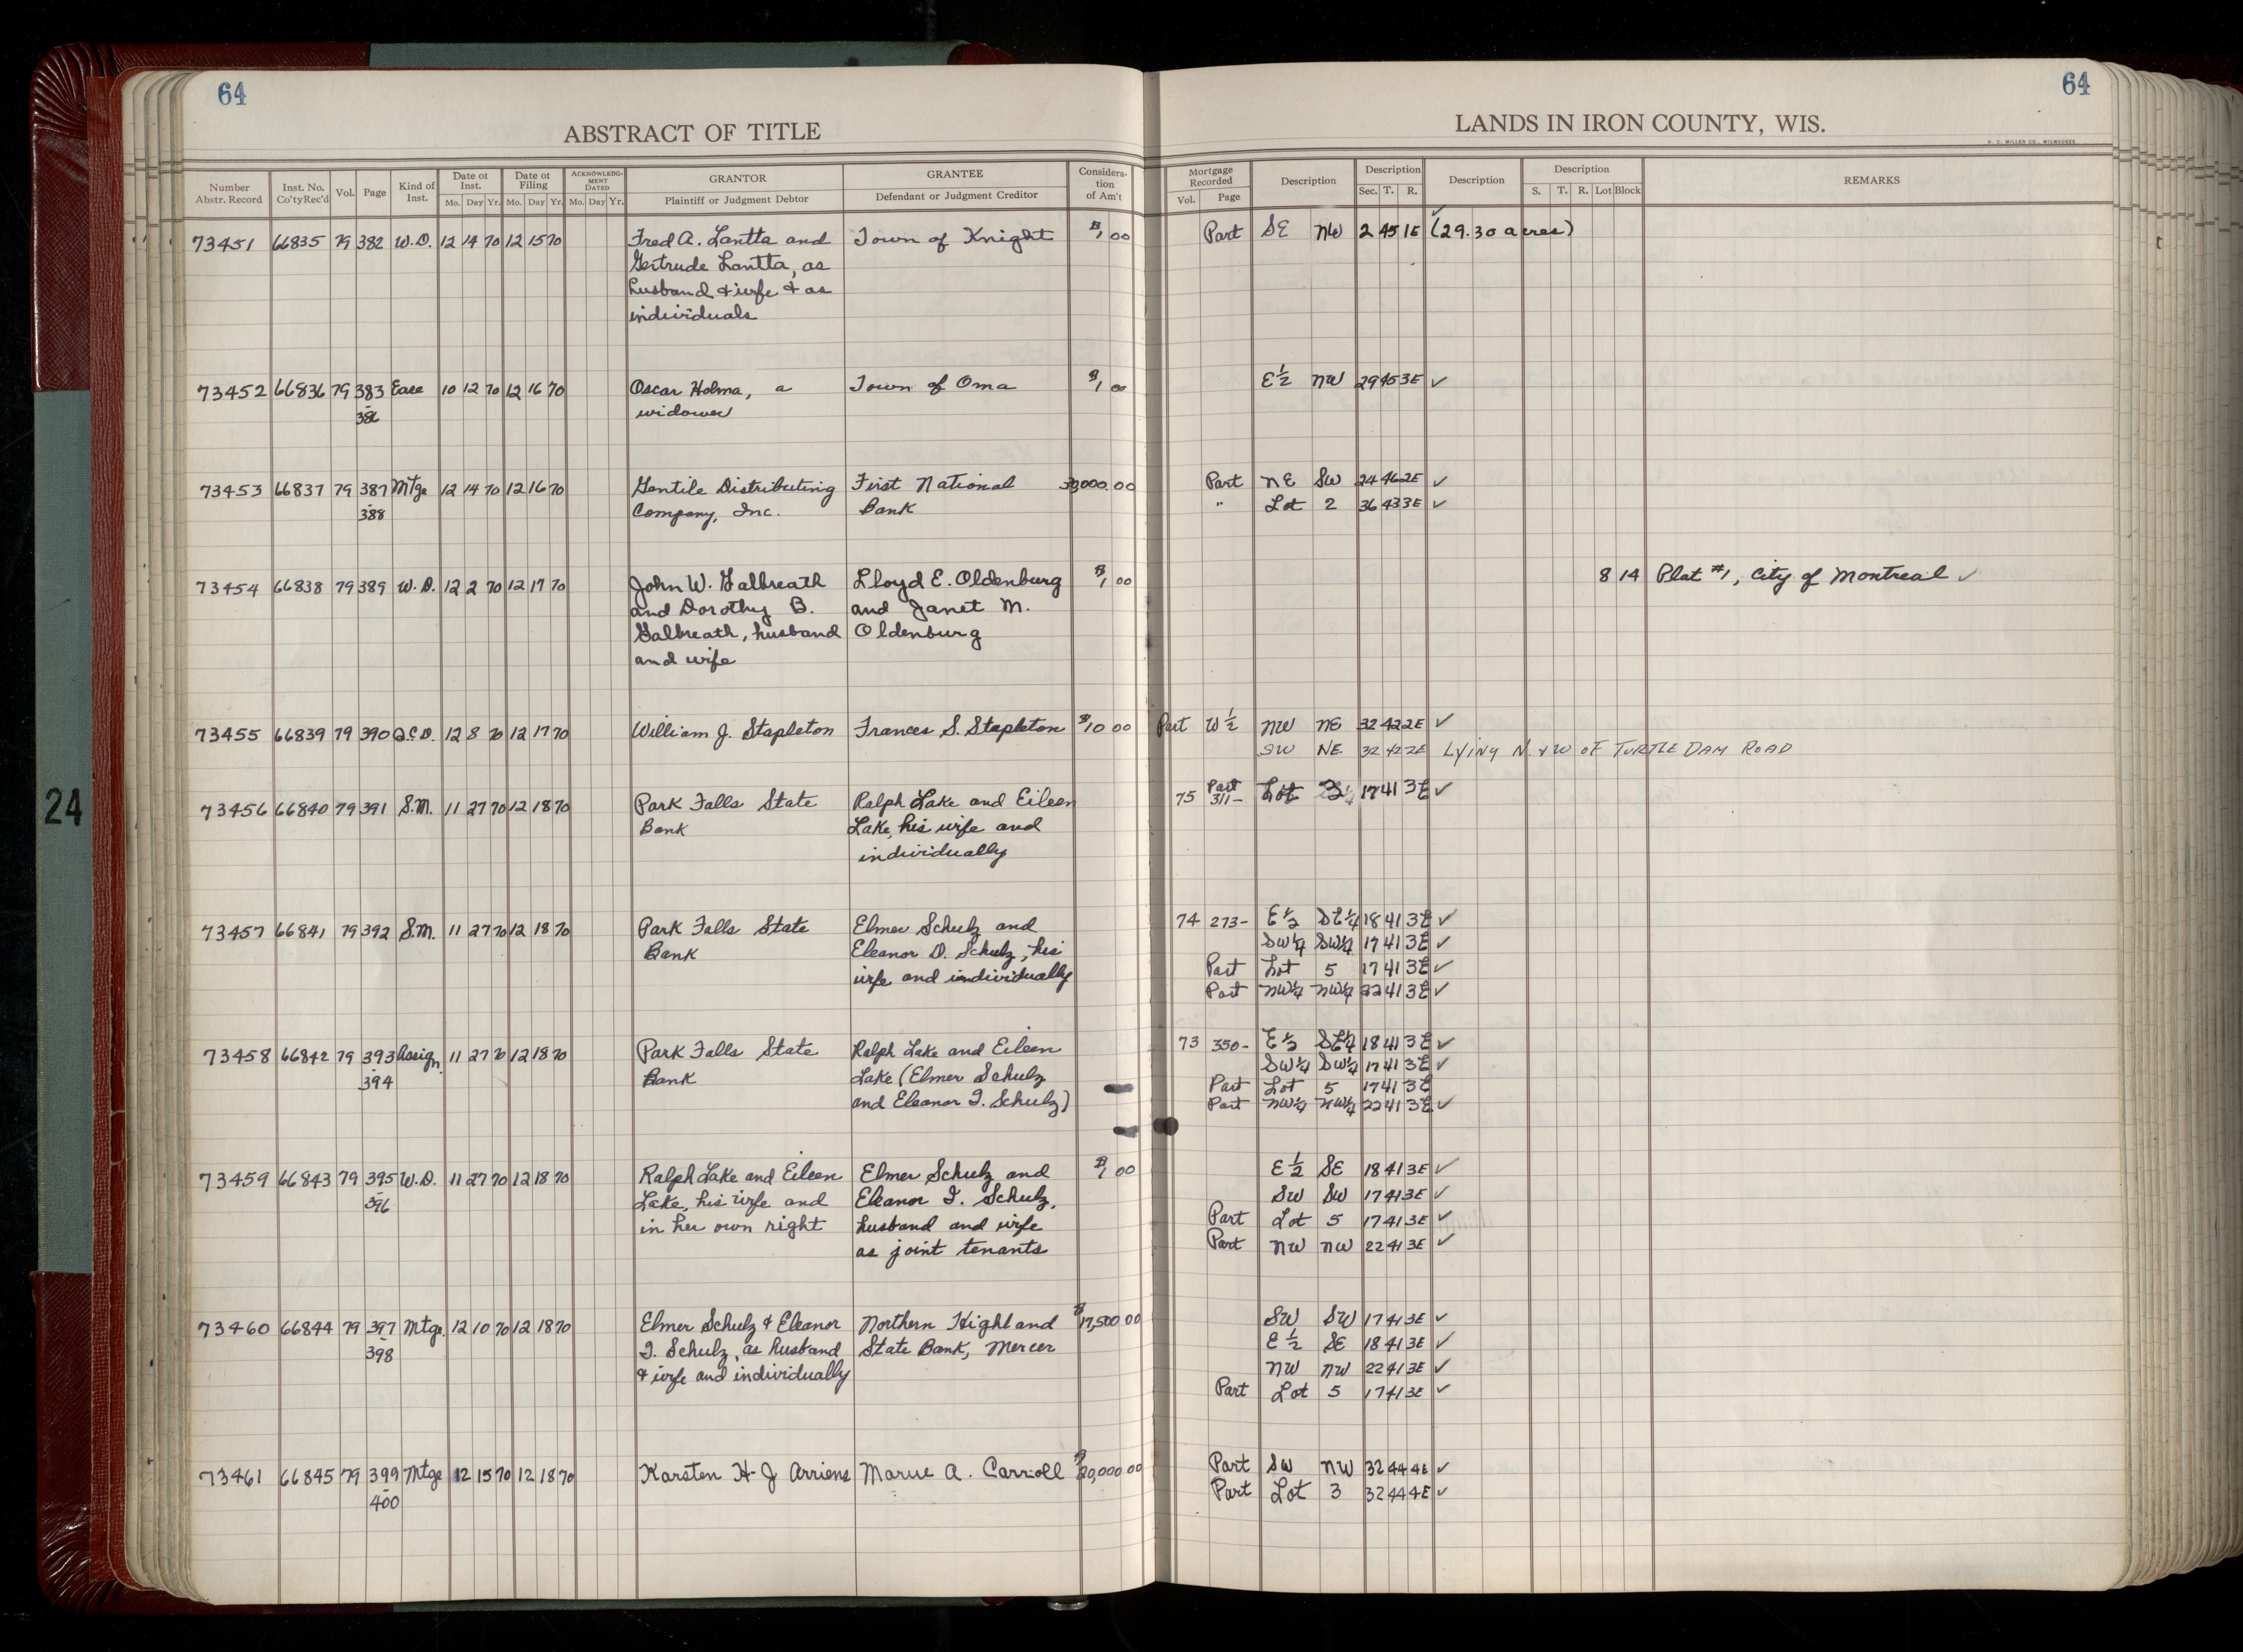 64
64
ABSTRACT OF TITLE
LANDS IN IRON COUNTY, WIS.
H. C. MILLER CO., MILWAUKEE
Number Abstr. Record | Inst. No. Co'ty Rec'd | Vol. | Page | Kind of Inst. | Date of Inst. Mo. Day Yr. | Date of Filing Mo. Day Yr. | ACKNOWLEDGMENT DATED Mo. Day Yr. | GRANTOR Plaintiff or Judgment Debtor | GRANTEE Defendant or Judgment Creditor | Consideration of Am't | Mortgage Recorded Vol. Page | Description | Description Sec. T. R. | Description | Description S. T. R. Lot Block | REMARKS
73451 66835 79 382 W.D. 12 14 70 12 15 70 Fred A. Lantta and Town of Knight $1 00 Part SE NW 2 45 1E ✓ (29.30 acres)
Gertrude Lantta, as
husband & wife & as
individuals
73452 66836 79 383 Ease 10 12 70 12 16 70 Oscar Holma, a Town of Oma $1 00 E½ NW 29 45 3E ✓
- 386 widower
73453 66837 79 387 Mtge 12 14 70 12 16 70 Gentile Distributing First National 000 00 Part NE SW 24 46 2E ✓
- 388 Company, Inc. Bank " Lot 2 36 43 3E ✓
73454 66838 79 389 W.D. 12 2 70 12 17 70 John W. Galbreath Lloyd E. Oldenburg $1 00 8 14 Plat #1, City of Montreal ✓
and Dorothy B. and Janet M.
Galbreath, husband Oldenburg
and wife
73455 66839 79 390 Q.C.D. 12 8 70 12 17 70 William J. Stapleton Frances S. Stapleton $10 00 Part W½ NW NE 32 42 2E ✓
SW NE 32 42 2E LYING N. & W OF TURTLE DAM ROAD
73456 66840 79 391 S.M. 11 27 70 12 18 70 Park Falls State Ralph Lake and Eileen 75 Part 311- Lot 17 41 3E ✓
Bank Lake, his wife and
individually
73457 66841 79 392 S.M. 11 27 70 12 18 70 Park Falls State Elmer Schulz and 74 273- E½ SE¼ 18 41 3E ✓
Bank Eleanor D. Schulz, his SW¼ SW¼ 17 41 3E ✓
wife and individually Part Lot 5 17 41 3E ✓
Part NW¼ NW¼ 22 41 3E ✓
73458 66842 79 393 Assign. 11 27 70 12 18 70 Park Falls State Ralph Lake and Eileen 73 350- E½ SE¼ 18 41 3E ✓
- 394 Bank Lake (Elmer Schulz SW¼ SW¼ 17 41 3E ✓
and Eleanor I. Schulz) Part Lot 5 17 41 3E
Part NW¼ NW¼ 22 41 3E ✓
73459 66843 79 395 W.D. 11 27 70 12 18 70 Ralph Lake and Eileen Elmer Schulz and $1 00 E½ SE 18 41 3E ✓
- 396 Lake, his wife and Eleanor I. Schulz, SW SW 17 41 3E ✓
in her own right husband and wife Part Lot 5 17 41 3E ✓
as joint tenants Part NW NW 22 41 3E ✓
73460 66844 79 397 Mtge. 12 10 70 12 18 70 Elmer Schulz & Eleanor Northern Highland $17,500 00 SW SW 17 41 3E ✓
- 398 I. Schulz, as husband State Bank, Mercer E½ SE 18 41 3E ✓
& wife and individually NW NW 22 41 3E ✓
Part Lot 5 17 41 3E ✓
73461 66845 79 399 Mtge 12 15 70 12 18 70 Karsten H J Arriens A. Carroll $20,000 00 Part SW NW 32 44 4E ✓
- 400 Part Lot 3 32 44 4E ✓
24